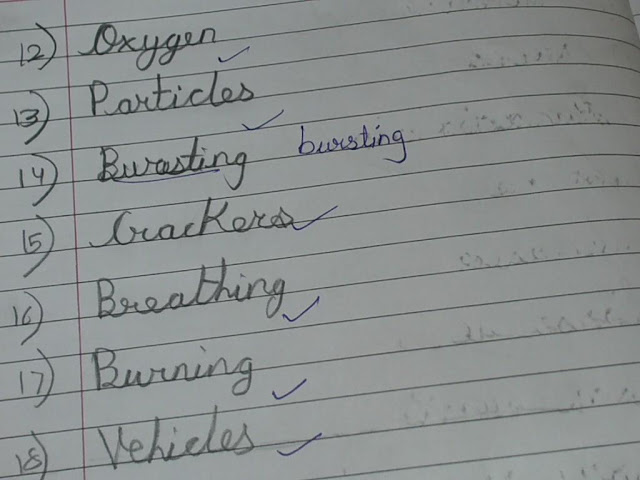 12) Oxygen
13) Particles
14) Burasting bursting
15) Crackers
16) Breathing
17) Burning
18) Vehicles